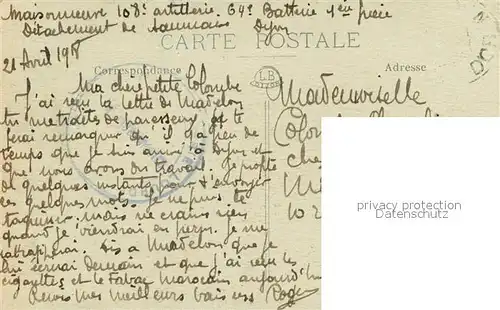 Maisonneuve 108e artillerie. 64e Batterie 1ere pièce
Détachement de Dijon
CARTE POSTALE
21 Avril 191
Correspondance
Adresse
LB
Ma chère petite Colombe
J'ai reçu la lettre de Madelon
tu me traites de paresseux et te
ferai remarquer qu'il y a peu de
temps que je suis arrivé à Dijon et
que nous avons du travail. Je profite
de quelques instants pour t'envoyer
ces quelques mots. Je ne puis te
taquiner mais ne crains rien
quand je viendrai en perm. je me
rattraperai. Dis à Madelon que je
lui écrirai demain et que j'ai reçu les
cigarettes et le tabac marocain aujourd'hui
Reçois mes meilleurs baisers Roger
Mademoiselle
Colombe
che
M
10 2
privacy protection
Datenschutz